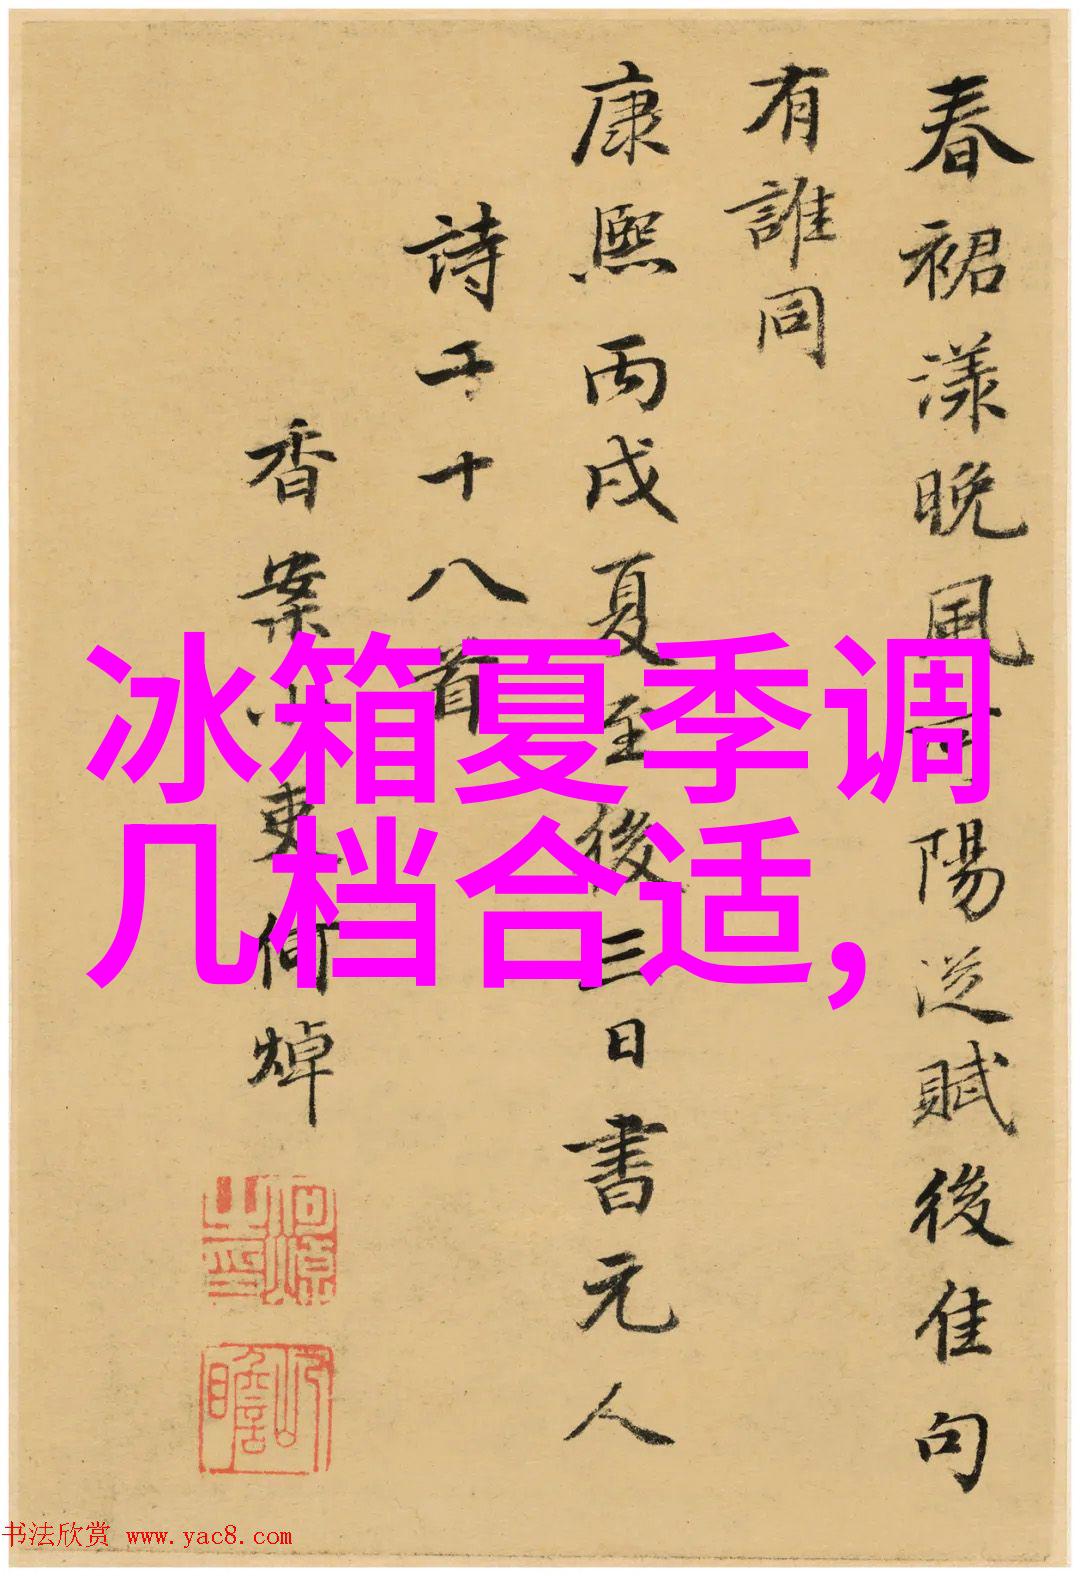 春裙漾晚風可陽送賦後佳句
有誰同
康熙丙戌夏至後三日書元人
詩于十八首
香案小吏何焯
冰箱夏季调
几档合适,
书法欣赏 www.yac8.com